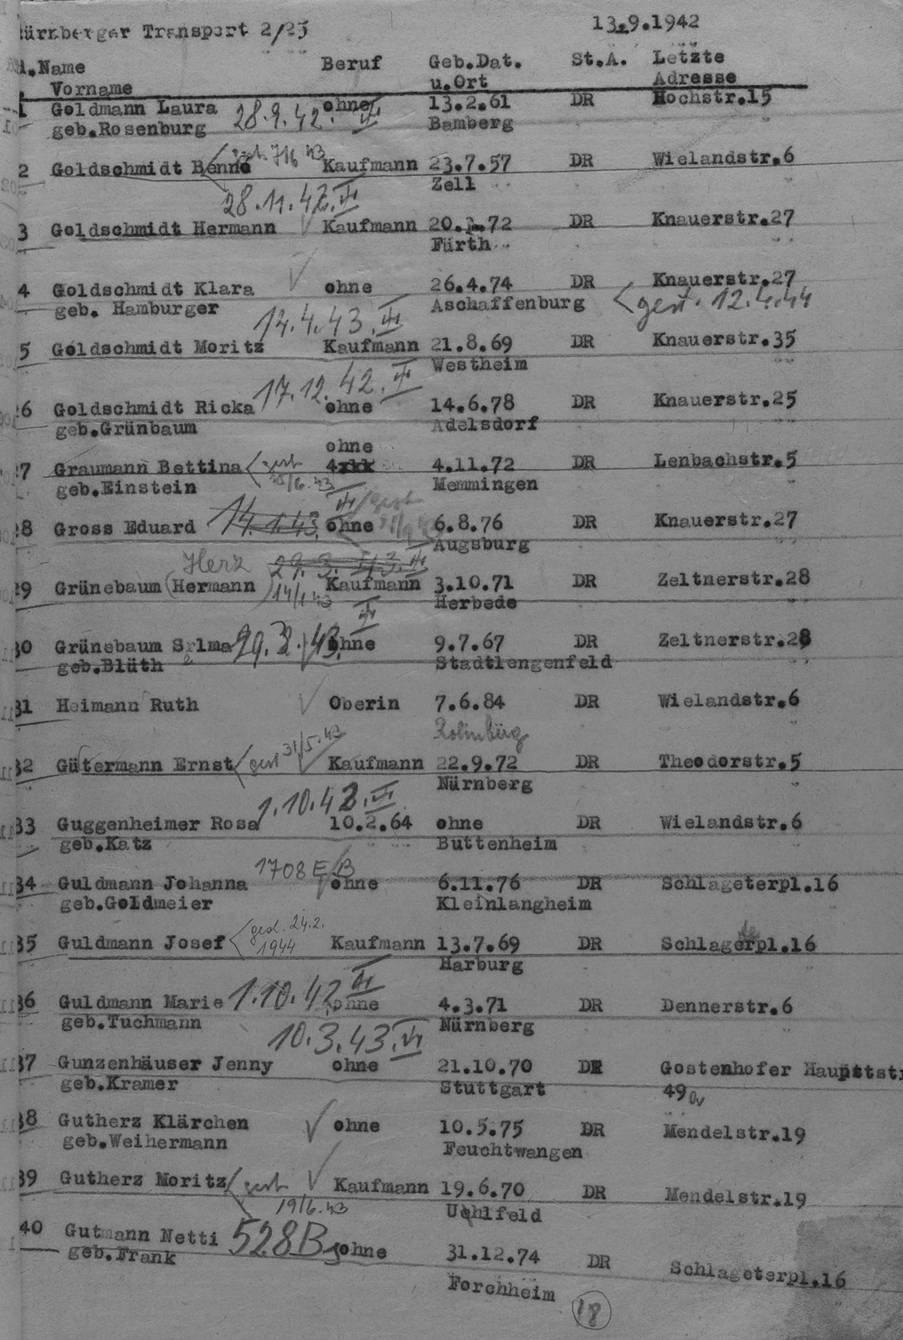 ürnberger Transport 2/25 13.9.1942
Name Beruf Geb.Dat. St.A. Letzte
Vorname u.Ort Adresse
Goldmann Laura ohne 13.2.61 DR Hochstr.15
geb.Rosenburg 28.9.42. Bamberg
2 Goldschmidt Benno gest. 7/6 43 Kaufmann 23.7.57 DR Wielandstr.6
Zell
28.11.42.
3 Goldschmidt Hermann Kaufmann 20. .72 DR Knauerstr.27
Fürth
4 Goldschmidt Klara ohne 26.4.74 DR Knauerstr.27
geb. Hamburger Aschaffenburg gest. 12.4.44
14.4.43.
5 Goldschmidt Moritz Kaufmann 21.8.69 DR Knauerstr.35
Westheim
17.12.42.
26 Goldschmidt Ricka ohne 14.6.78 DR Knauerstr.25
geb.Grünbaum Adelsdorf
ohne
27 Graumann Bettina gest 4.11.72 DR Lenbachstr.5
geb.Einstein /6.43 Memmingen
28 Gross Eduard 14.1.43. ohne gest 6.8.76 DR Knauerstr.27
Augsburg
Herz 29.3.43.
29 Grünebaum (Hermann) 14/1 43 Kaufmann 3.10.71 DR Zeltnerstr.28
Herbede
30 Grünebaum Selma 29.3.43. ohne 9.7.67 DR Zeltnerstr.28
geb.Blüth Stadtlengenfeld
31 Heimann Ruth Oberin 7.6.84 DR Wielandstr.6
32 Gütermann Ernst gest 31/5.43 Kaufmann 22.9.72 DR Theodorstr.5
Nürnberg
1.10.42
33 Guggenheimer Rosa 10.2.64 ohne DR Wielandstr.6
geb.Katz Buttenheim
1708 E/B
34 Guldmann Johanna ohne 6.11.76 DR Schlageterpl.16
geb.Goldmeier Kleinlangheim
35 Guldmann Josef gest. 24.2. 1944 Kaufmann 13.7.69 DR Schlageterpl.16
Harburg
36 Guldmann Marie 1.10.42 ohne 4.3.71 DR Dennerstr.6
geb.Tuchmann Nürnberg
10.3.43.
37 Gunzenhäuser Jenny ohne 21.10.70 DR Gostenhofer Hauptstr
geb.Kramer Stuttgart 49
38 Gutherz Klärchen ohne 10.5.75 DR Mendelstr.19
geb.Weihermann Feuchtwangen
39 Gutherz Moritz gest Kaufmann 19.6.70 DR Mendelstr.19
19/6.43 Uehlfeld
40 Gutmann Netti 528B ohne 31.12.74 DR Schlageterpl.16
geb.Frank Forchheim
18